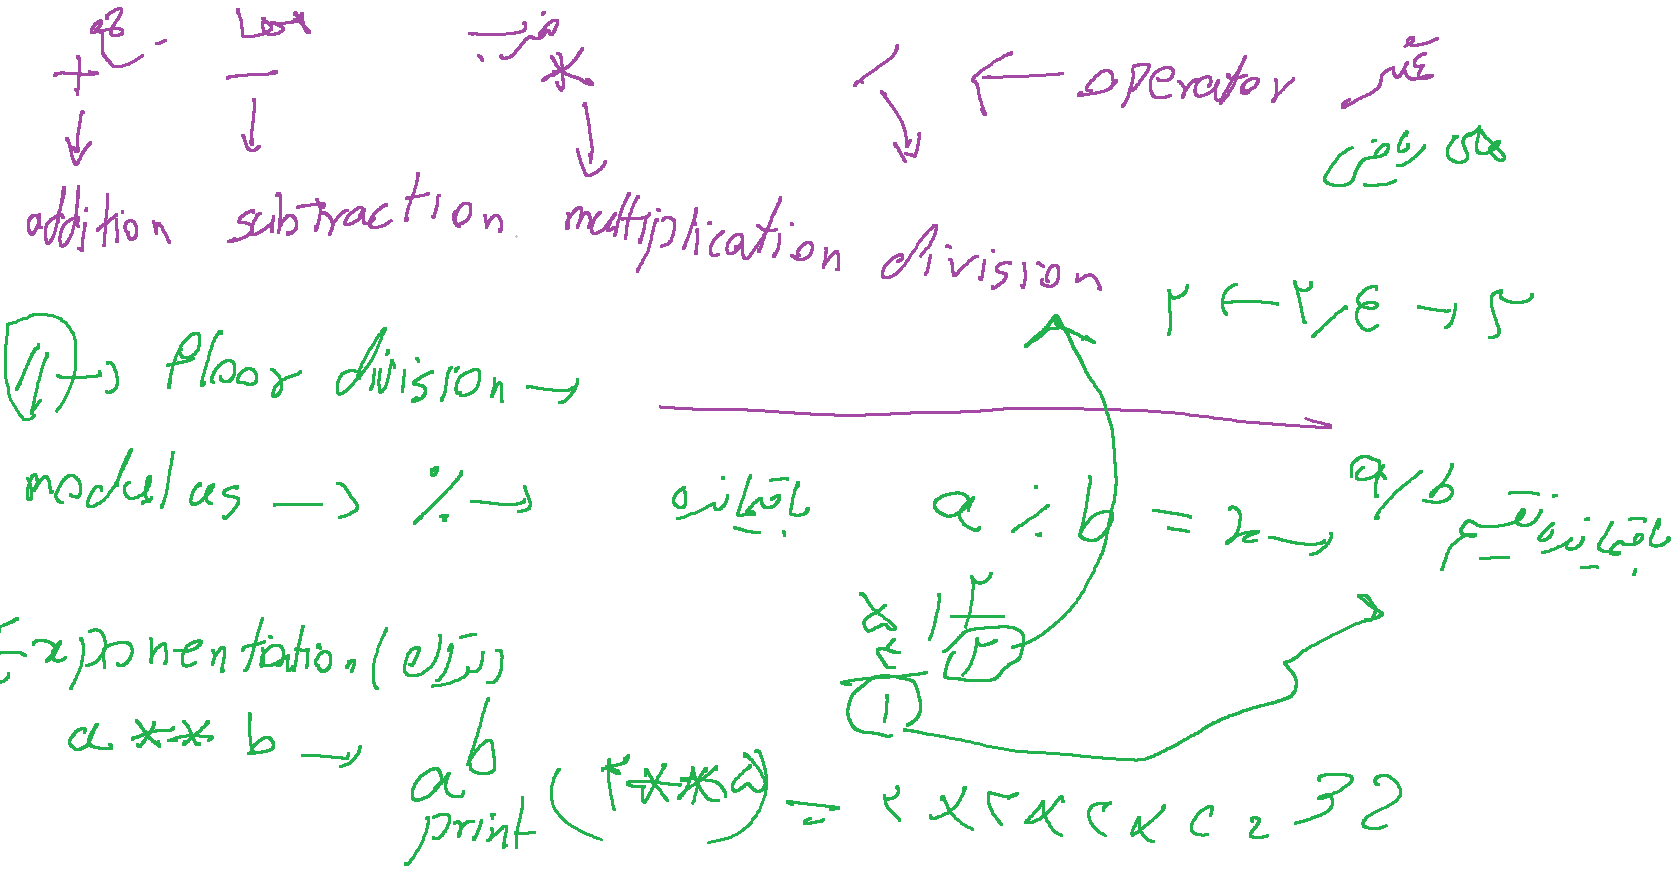 جمع منها ضرب
+ - * / ← operator عملگر
های ریاضی
addition subtraction multiplication division
۲ ← ۲/۴ → ۲
// → floor division →
modulus → % → باقیمانده a % b = x → a/b باقیمانده تقسیم
۵ | ۲
۴ ۲
۱
Exponentiation (توان)
a ** b → a^b
print (۲**۵) = ۲ x ۲ x ۲ x ۲ = 32